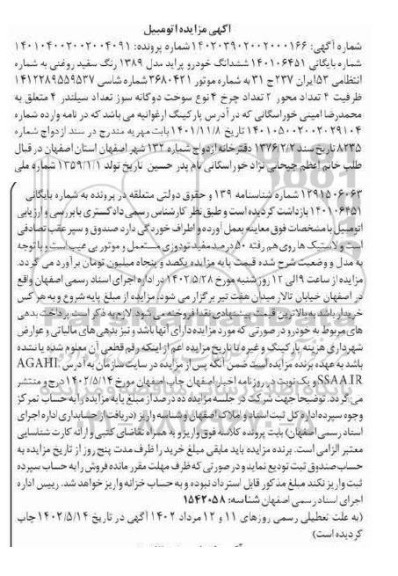 آگهی مزایده اتومبیل
شماره آگهی: ۱۴۰۲۰۳۹۰۲۰۰۲۰۰۰۱۶۶ شماره پرونده: ۱۴۰۱۰۴۰۰۲۰۰۲۰۰۴۰۹۱
شماره بایگانی ۱۴۰۱۰۶۴۵۱ ششدانگ خودرو پراید مدل ۱۳۸۹ رنگ سفید روغنی به شماره
انتظامی ۵۳ایران ۲۳۷ج ۳۱ به شماره موتور ۳۶۸۰۴۲۱ شماره شاسی ۱۴۱۲۲۸۹۵۵۹۵۳۷
ظرفیت ۴ تعداد محور ۲ تعداد چرخ ۴ نوع سوخت دوگانه سوز تعداد سیلندر ۴ متعلق به
محمدرضا امینی خوراسگانی که در آدرس پارکینگ ارغوانیه می باشد که در نامه وارده شماره
۱۴۰۱۰۵۰۰۲۰۰۲۰۲۹۱۰۴ تاریخ ۱۴۰۱/۱۱/۸ بابت مهریه مندرج در سند ازدواج شماره
۸۲۳۵ تاریخ سند ۱۳۷۶/۲/۲ دفترخانه ازدواج شماره ۱۳۲ شهر اصفهان استان اصفهان در قبال
طلب خانم اعظم جیحانی نژاد خوراسگانی نام پدر حسین تاریخ تولد ۱۳۵۹/۱/۱ شماره ملی
۱۲۹۱۵۰۶۰۶۳ شماره شناسنامه ۱۳۹ و حقوق دولتی متعلقه در پرونده به شماره بایگانی
۱۴۰۱۰۶۴۵۱ بازداشت گردیده است و طبق نظر کارشناس رسمی دادگستری با بررسی و ارزیابی
اتومبیل با مشخصات فوق معاینه بعمل آورده و اطراف خوردگی دارد صندوق و سپر عقب تصادفی
است و لاستیک ها روی هم رفته ۵۰ درصد مفید تودوزی مستعمل و موتور بی عیب است و با توجه
به مدل و وضعیت شرح شده قیمت پایه مزایده یکصد و پنجاه میلیون تومان برآورد می گردد.
مزایده از ساعت ۹ الی ۱۲ روز شنبه مورخ ۱۴۰۲/۵/۲۸ در اداره اجرای اسناد رسمی اصفهان واقع
در اصفهان خیابان تالار میدان هفت تیر برگزار می شود. مزایده از مبلغ پایه شروع و به هر کس
خریدار باشد به بالاترین قیمت پیشنهادی نقدا فروخته می شود. لازم به ذکر است پرداخت بدهی
های مربوط به خودرو در صورتی که مورد مزایده دارای آنها باشد و نیز بدهی های مالیاتی و عوارض
شهرداری هزینه پارکینگ و غیره تا تاریخ مزایده اعم از اینکه رقم قطعی آن معلوم شده یا نشده
باشد به عهده برنده مزایده است ضمن آنکه پس از مزایده در سایت سازمان به آدرس AGAHI.
SSAA.IR و یک نوبت در روزنامه اخبار اصفهان چاپ اصفهان مورخ ۱۴۰۲/۵/۱۴ درج و منتشر
می گردد. توضیحا جهت شرکت در جلسه مزایده ده درصد از مبلغ پایه مزایده را به حساب تمرکز
وجوه سپرده اداره کل ثبت اسناد و املاک اصفهان و شناسه واریز (دریافت از حسابداری اداره اجرای
اسناد رسمی اصفهان) بابت پرونده کلاسه فوق واریز و به همراه تقاضای کتبی و ارائه کارت شناسایی
معتبر الزامی است. برنده مزایده باید مابقی مبلغ خرید را ظرف مدت پنج روز از تاریخ مزایده به
حساب صندوق ثبت تودیع نماید و در صورتی که ظرف مهلت مقرر مانده فروش را به حساب سپرده
ثبت واریز نکند مبلغ مذکور قابل استرداد نبوده و به حساب خزانه واریز خواهد شد. رییس اداره
اجرای اسناد رسمی اصفهان شناسه: ۱۵۴۲۰۵۸
(به علت تعطیلی رسمی روزهای ۱۱ و ۱۲ مرداد ۱۴۰۲ آگهی در تاریخ ۱۴۰۲/۵/۱۴ چاپ
گردیده است)